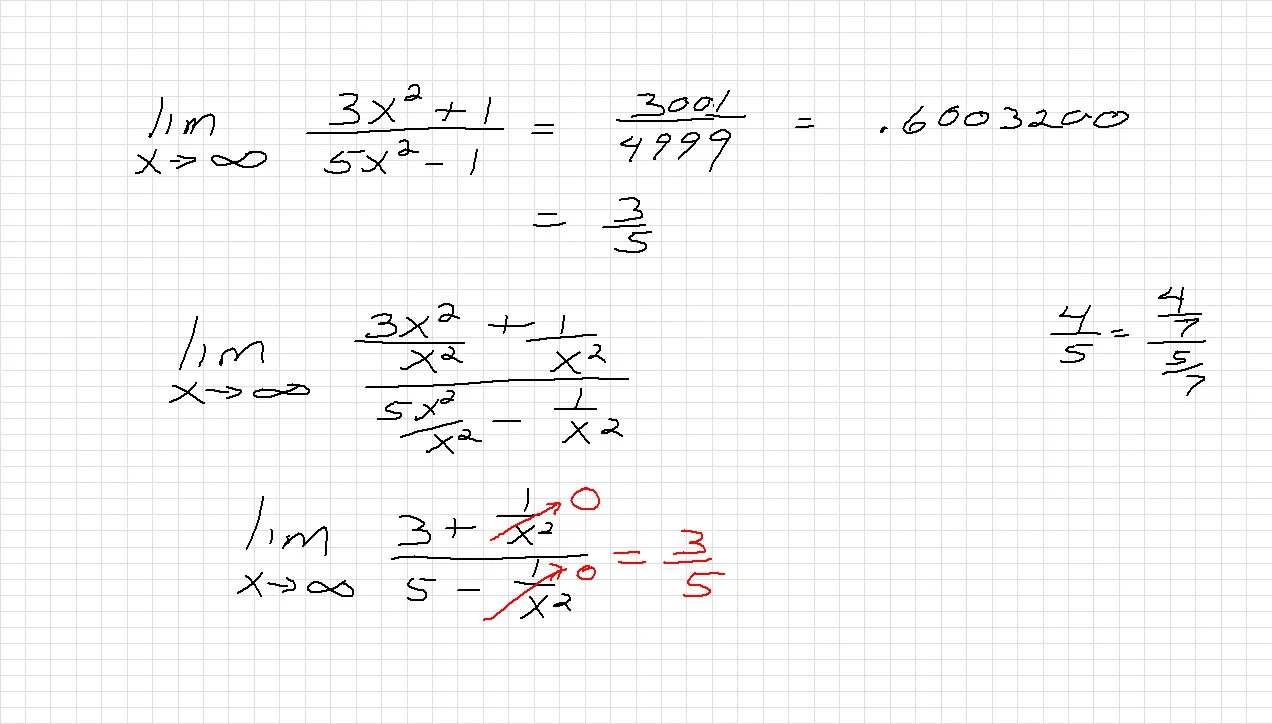 lim x→∞ (3x² + 1)/(5x² - 1) = 3001/4999 = .6003200
= 3/5
lim x→∞ (3x²/x² + 1/x²)/(5x²/x² - 1/x²)
4/5 = (4/7)/(5/7)
lim x→∞ (3 + 1/x² → 0)/(5 - 1/x² → 0) = 3/5